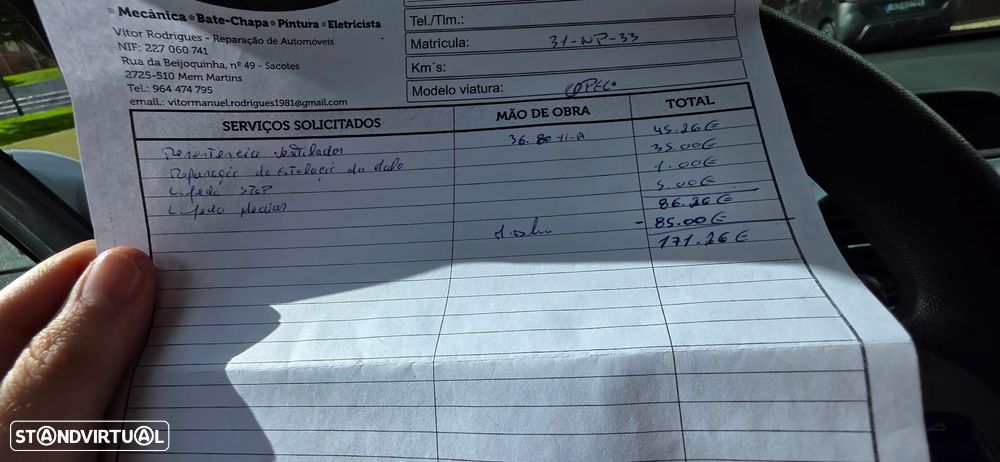 • Mecânica • Bate-Chapa • Pintura • Eletricista
Vitor Rodrigues - Reparação de Automóveis
NIF: 227 060 741
Rua da Beijoquinha, nº 49 - Sacotes
2725-510 Mem Martins
Tel.: 964 474 795
email.: vitormanuel.rodrigues1981@gmail.com
Tel./Tlm.:
Matricula: 31-NP-33
Km´s:
Modelo viatura:
SERVIÇOS SOLICITADOS MÃO DE OBRA TOTAL
36.80 45.26€
35.00€
STOP 1.00€
5.00€
86.26€
- 85.00€
171.26€
STANDVIRTUAL